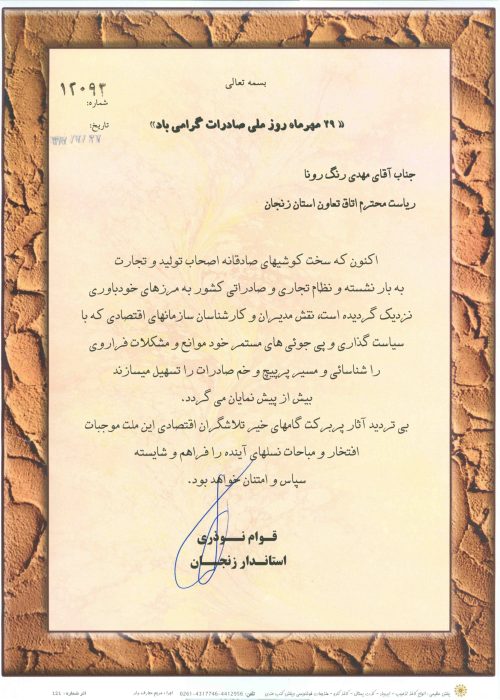 بسمه تعالی
۱۲۰۹۳
شماره:
تاریخ:
« ۲۹ مهرماه روز ملی صادرات گرامی باد»
جناب آقای مهدی رنگ رونا
ریاست محترم اتاق تعاون استان زنجان
اکنون که سخت کوشیهای صادقانه اصحاب تولید و تجارت
به بار نشسته و نظام تجاری و صادراتی کشور به مرزهای خودباوری
نزدیک گردیده است، نقش مدیران و کارشناسان سازمانهای اقتصادی که با
سیاست گذاری و پی جوئی های مستمر خود موانع و مشکلات فراروی
را شناسائی و مسیر پرپیچ و خم صادرات را تسهیل میسازند
بیش از پیش نمایان می گردد.
بی تردید آثار پربرکت گامهای خیر تلاشگران اقتصادی این ملت موجبات
افتخار و مباحات نسلهای آینده را فراهم و شایسته
سپاس و امتنان خواهد بود.
قوام نوذری
استاندار زنجان
تلفن: 4412956-4317746-0261
اثر شماره: 121